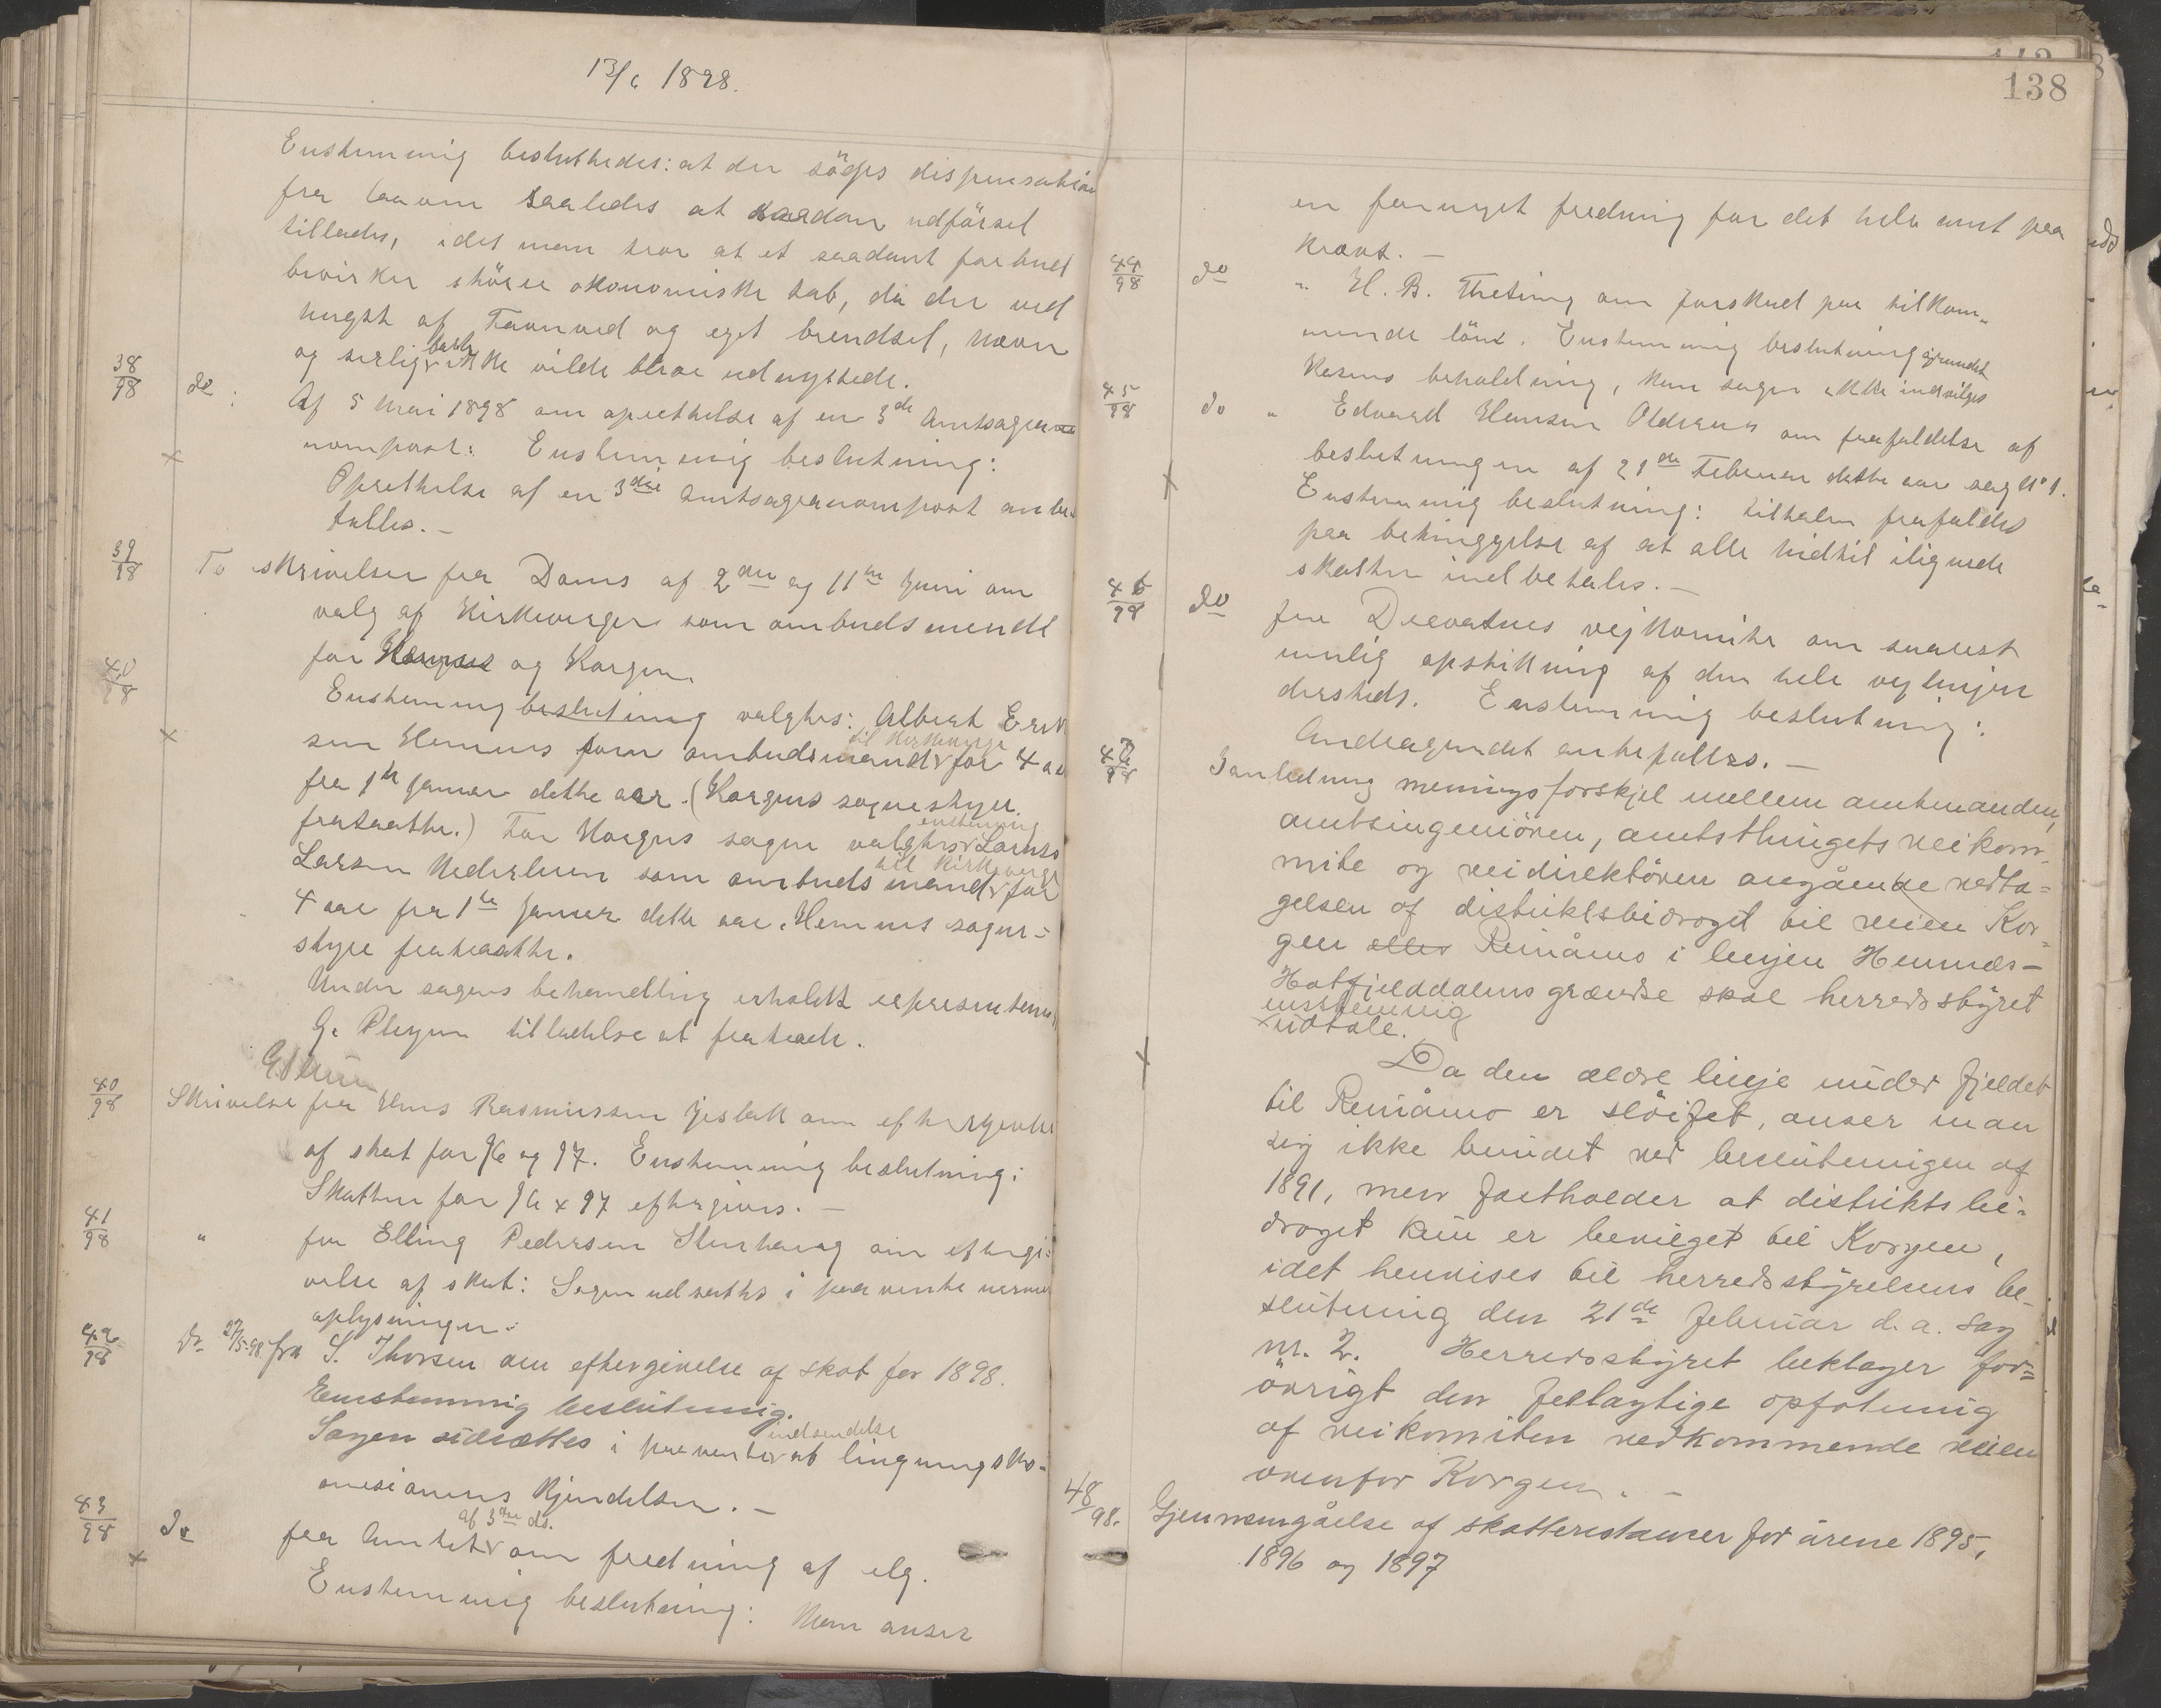 13/6 1898.
Enstemmig besluttedes: at der søges dispensation
fra loven saaledes at saadan udførsel
tillades, idet man tror at et saadant forbud
bevirker større økonomiske tab, da der ved
hugst af Favnved og eget brendsel, Never
og serlig bark ikke vilde blive udnyttede.
38/98 do: Af 5 Mai 1898 om oprettelse af en 3de Amtsagro
nompost: Enstemmig beslutning:
Oprettelse af en 3die Amtsagronompost anbe-
falles.-
39/98 To skrivelser fra Dams af 2den og 11te Juni om
valg af Kirkeverger som ombudsmendt
for og Korgen.
40/98
Enstemmig beslutning valgtes: Albert Erik
sen Hemnes som ombudsmand til Kirkeverge for 4 aar
fra 1te Januar dette aar. (Korgens sognestyre
fratraatte.) For Korgens sogn valgtes enstemmig Lorents
Larsen Nederleir som ombudsmand til Kirkeverge for
4 aar fra 1te Januar dette aar. Hemnes sogne-
styre fratraatte.
Under sagens behandling erholdt representant
G. tilladelse at fratræde.
40/98 Skrivelse fra Hans Rasmussen om eftergivelse
af skat for 96 og 97. Enstemmig beslutning:
Skatten for 96 & 97 eftergives.-
41/98 " fra Elling Pedersen Stenhaug om eftergi-
velse af skat: Sagen udsættes i paavente nermere
oplysninger.-
42/98 do 27/5-98. fra S. Thorsen om eftergivelse af skat for 1898.
Eenstemmig beslutning.
Sagen udsættes i paavente indsendelse at ligningsko-
misionens Kjendelse.-
43/98 do fra Amtet af 3die ds. om fredning af elg.
Enstemmig beslutning: Man anser
138
en fornyet fredning for det hele amt paa
krævt.-
44/98 do " H. B. Thesing om forskud paa tilkom-
mende løn. Enstemmig beslutning grundet
Kasens beholdning, kan sagen ikke indvilges
45/98 do " Edvard Hansen Olderens om frafaldelse af
beslutningen af 21de Februar dette aar sag No 1.
Enstemmig beslutning: tiltalen frafaldes
paa betinggelse af at alle hidtil ilignede
skatter indbetales.-
46/98 do fra Drevatnes vejkomite om snarest
mulig opstikning af den hele vejlinjen
dersteds. Enstemmig beslutning:
Andragendet anbefalles.-
47/98 I anledning meningsforskjel mellem amtmanden,
amtsingeniøren, amtsthingets veikom-
mite og veidirektøren angående vedta-
gelsen af distriktsbidraget til veien Kor-
gen elles Renåmo i linjen Hemnes-
Hatfjelddalens grændse skal herredsstyret
enstemmig
udtale.
Da den ældre linje under fjeldet
til Renåmo er sløifet, anser man
sig ikke bundet ved beslutningen af
1891, men fastholder at distriktsbi-
draget kun er bevilget til Korgen,
idet henvises til herredsstyrelsens be-
slutning den 21de februar d.a. sag
nr. 2. Herredsstyret beklager for-
øvrigt den feilagtige opfatning
af veikomiten vedkommende veien
ovenfor Korgen.-
48/98. Gjennemgåelse af skatterestancer for årene 1895,
1896 og 1897